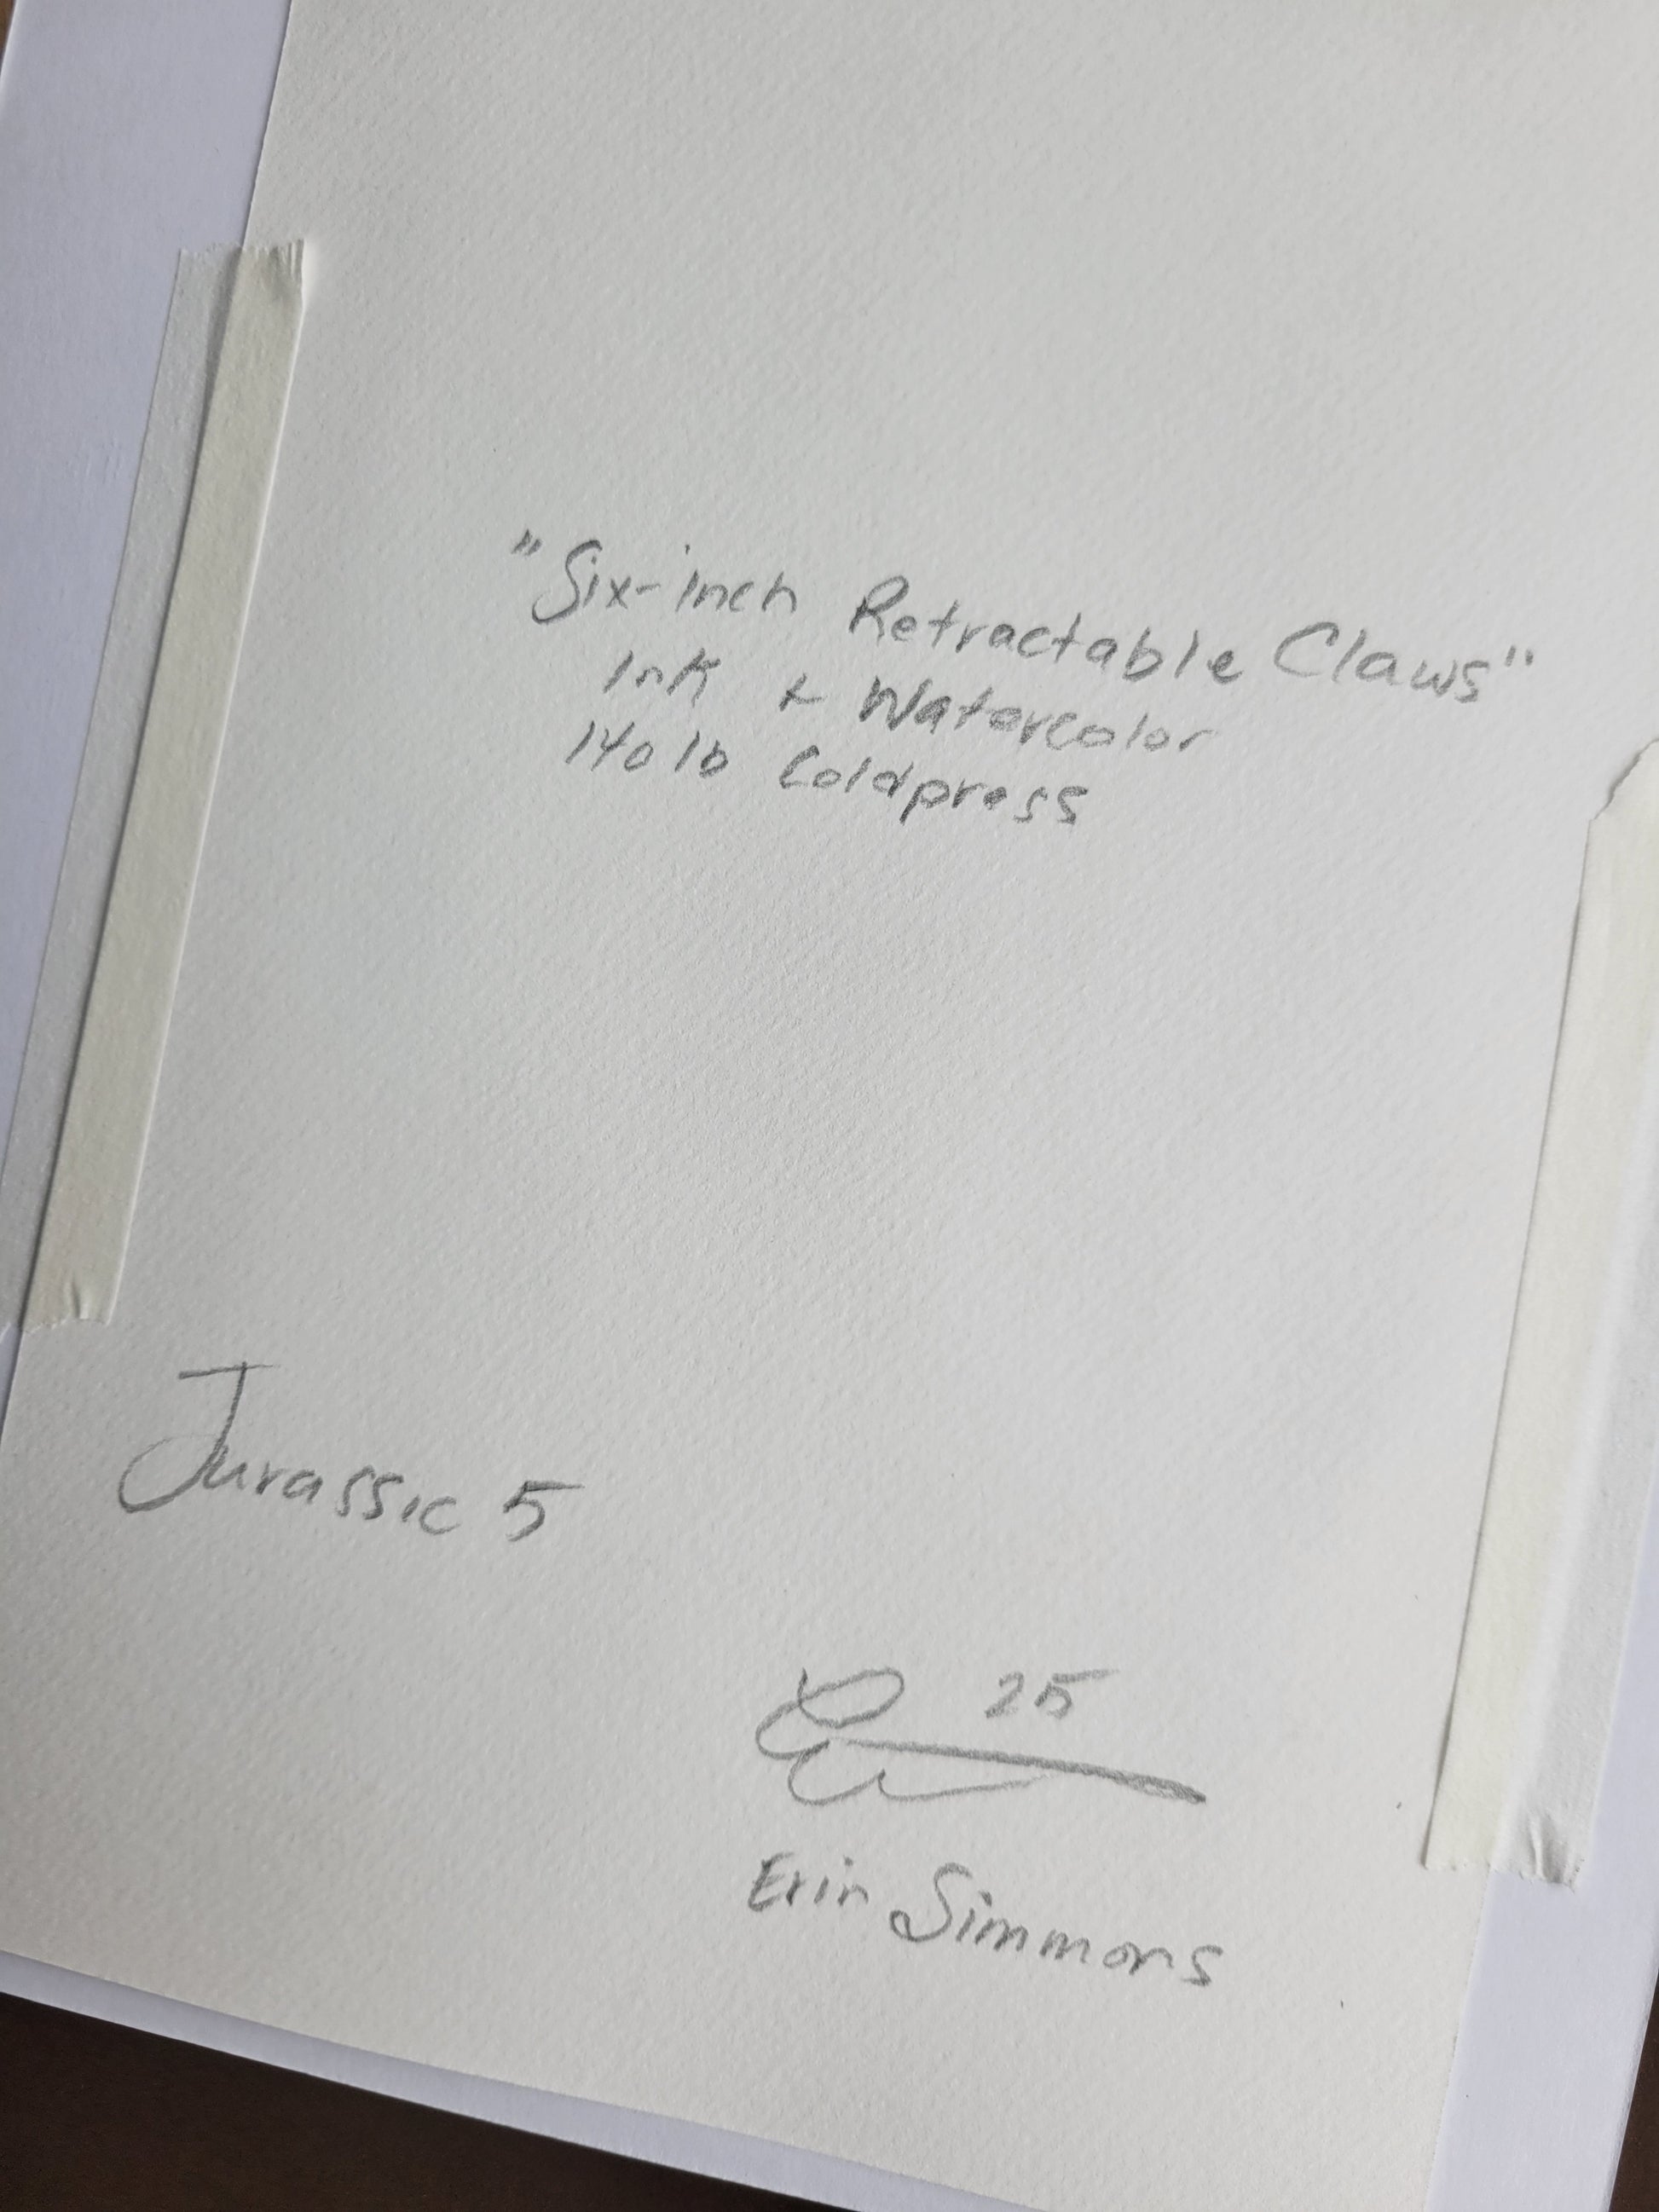 "Six-inch Retractable Claws"
Ink + Watercolor
140 lb Coldpress
Jurassic 5
25
Erin Simmons